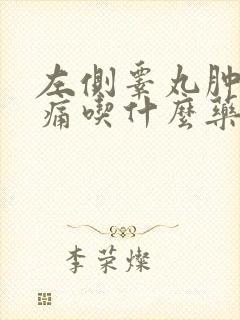 左側睾丸肿
痛喫什麼藥
李荣燦